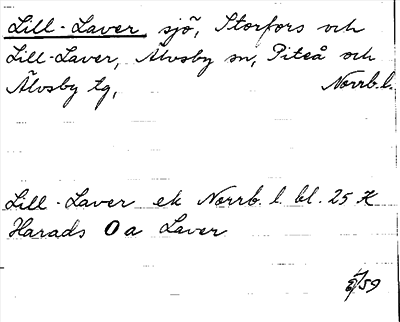 Lill-Laver sjö, Storfors och
Lill-Laver, Älvsby sn, Piteå och
Älvsby tg, Norrb.l.
Lill-Laver ek Norrb. l. bl. 25 K
Harads O a Laver
/59